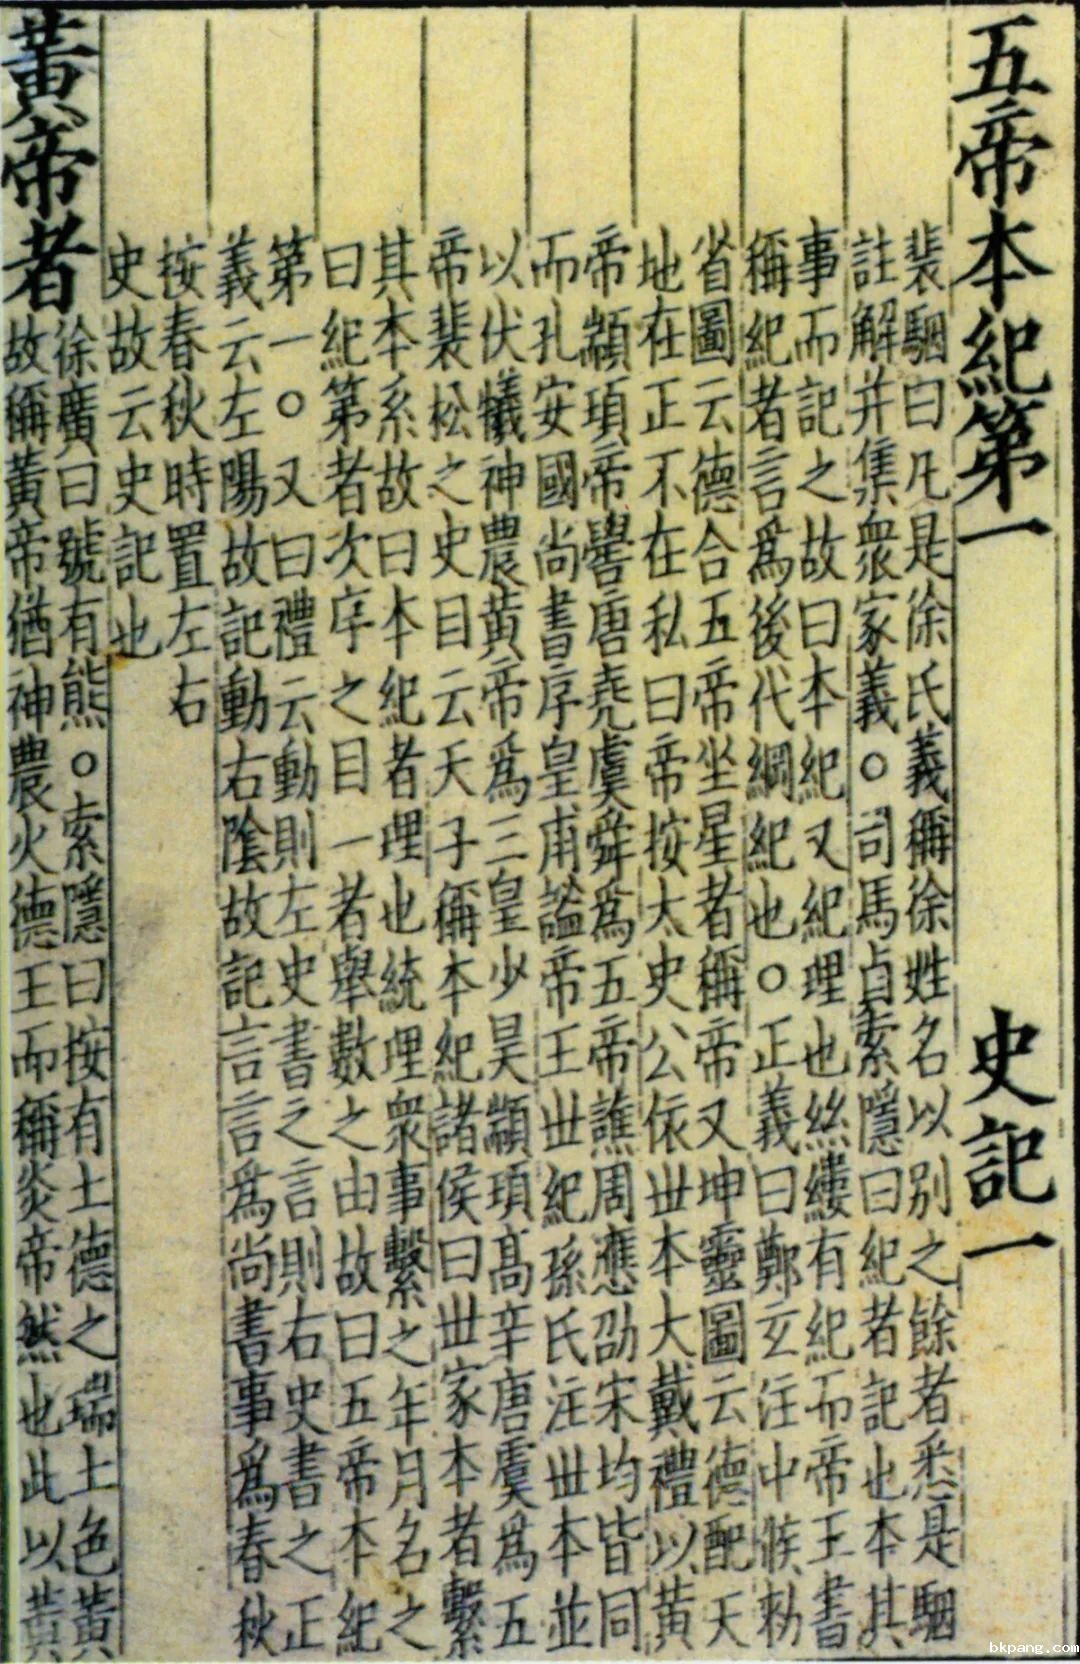 五帝本紀第一 史記一
裴駰曰凡是徐氏義稱徐姓名以別之餘者悉是駰
註解并集衆家義○司馬貞索隱曰紀者記也本其
事而記之故曰本紀又紀理也絲縷有紀而帝王書
稱紀者言爲後代綱紀也○正義曰鄭玄注中候勑
省圖云德合五帝坐星者稱帝又坤靈圖云德配天
地在正不在私曰帝按太史公依世本大戴禮以黃
帝顓頊帝嚳唐堯虞舜爲五帝譙周應劭宋均皆同
而孔安國尚書序皇甫謐帝王世紀孫氏注世本並
以伏犧神農黃帝爲三皇少昊顓頊高辛唐虞爲五
帝裴松之史目云天子稱本紀諸侯曰世家本者繫
其本系故曰本紀者理也統理衆事繫之年月名之
曰紀第者次序之目一者舉數之由故曰五帝本紀
第一○又曰禮云動則左史書之言則右史書之正
義云左陽故記動右陰故記言言爲尚書事爲春秋
按春秋時置左右
史故云史記也
黃帝者
徐廣曰號有熊○索隱曰按有土德之瑞土色黃
故稱黃帝猶神農火德王而稱炎帝然也此以黃
bkpang.com